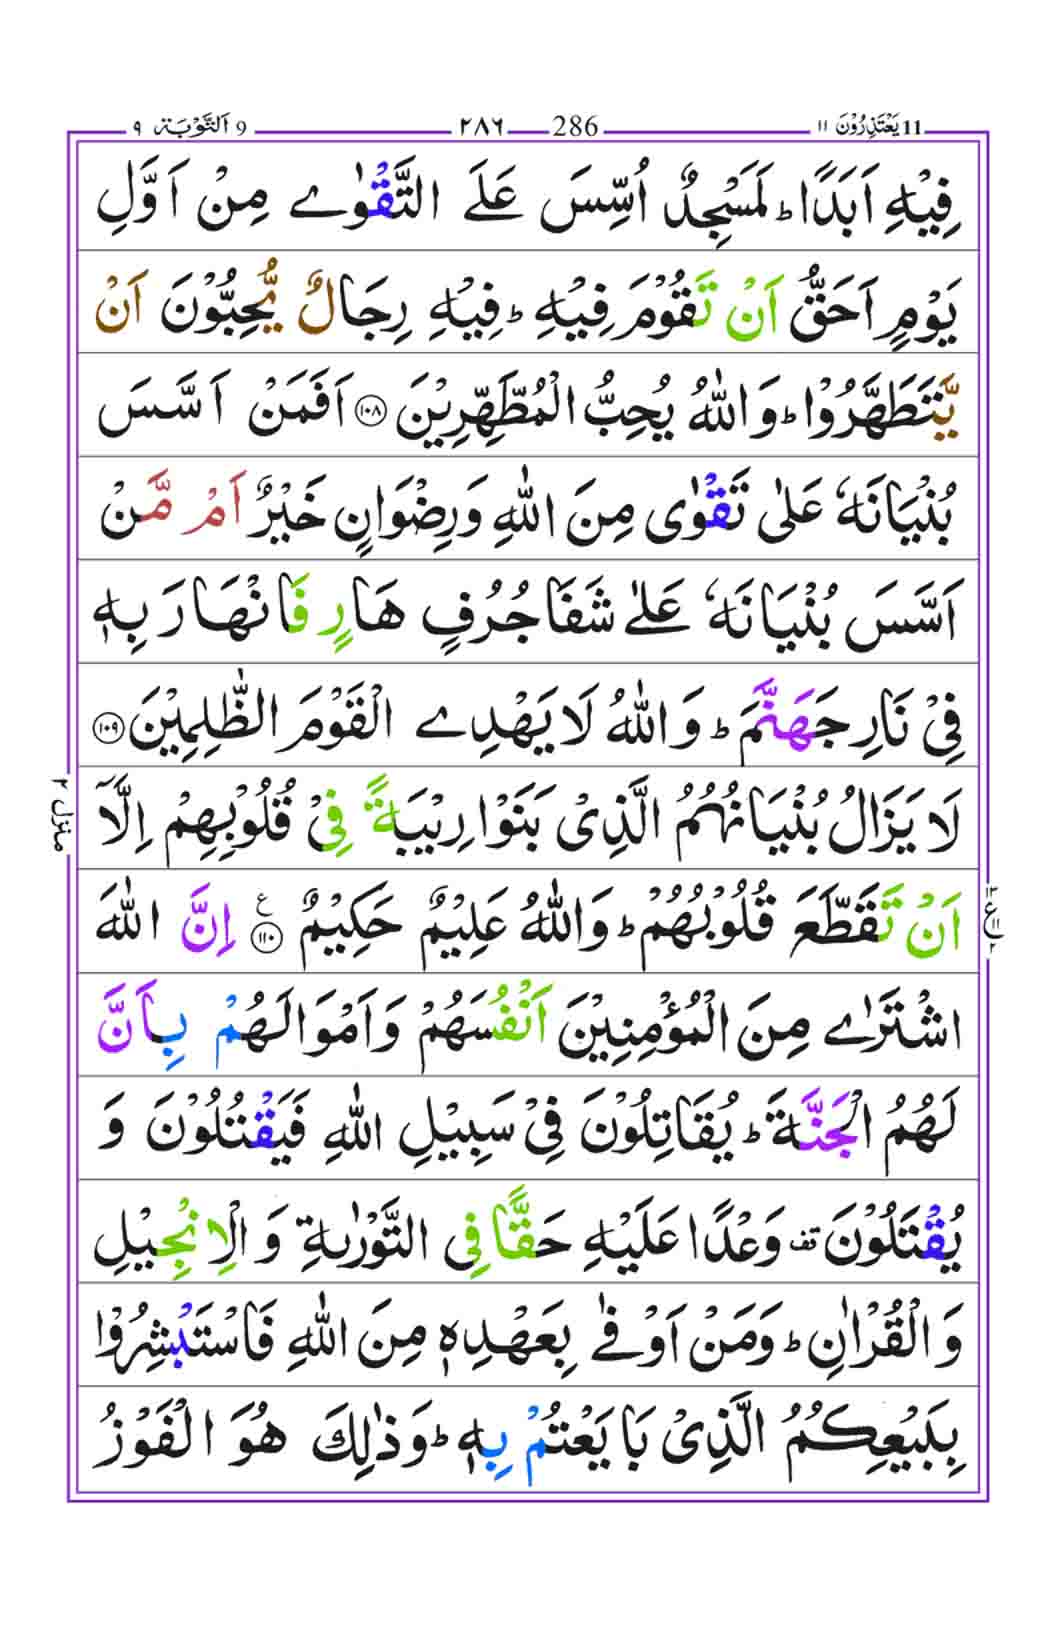 11 يَعْتَذِرُوْنَ ١١ 286 ٢٨٦ 9 اَلتَّوْبَة ٩
فِيْهِ اَبَدًا ؕ لَمَسْجِدٌ اُسِّسَ عَلَے التَّقْوٰے مِنْ اَوَّلِ
يَوْمٍ اَحَقُّ اَنْ تَقُوْمَ فِيْهِ ؕ فِيْهِ رِجَالٌ يُّحِبُّوْنَ اَنْ
يَّتَطَهَّرُوْا ؕ وَاللّٰهُ يُحِبُّ الْمُطَّهِّرِيْنَ ۝١٠٨ اَفَمَنْ اَسَّسَ
بُنْيَانَهٗ عَلٰى تَقْوٰى مِنَ اللّٰهِ وَرِضْوَانٍ خَيْرٌ اَمْ مَّنْ
اَسَّسَ بُنْيَانَهٗ عَلٰے شَفَا جُرُفٍ هَارٍ فَانْهَارَ بِهٖ
فِيْ نَارِ جَهَنَّمَ ؕ وَاللّٰهُ لَا يَهْدِے الْقَوْمَ الظّٰلِمِيْنَ ۝١٠٩
لَا يَزَالُ بُنْيَانُهُمُ الَّذِيْ بَنَوْا رِيْبَةً فِيْ قُلُوْبِهِمْ اِلَّاۤ
اَنْ تَقَطَّعَ قُلُوْبُهُمْ ؕ وَاللّٰهُ عَلِيْمٌ حَكِيْمٌ ۝١١٠ ع اِنَّ اللّٰهَ
اشْتَرٰے مِنَ الْمُؤْمِنِيْنَ اَنْفُسَهُمْ وَاَمْوَالَهُمْ بِاَنَّ
لَهُمُ الْجَنَّةَ ؕ يُقَاتِلُوْنَ فِيْ سَبِيْلِ اللّٰهِ فَيَقْتُلُوْنَ وَ
يُقْتَلُوْنَ قف وَعْدًا عَلَيْهِ حَقًّا فِي التَّوْرٰىةِ وَ الْاِنْجِيْلِ
وَ الْقُرْاٰنِ ؕ وَمَنْ اَوْفٰے بِعَهْدِهٖ مِنَ اللّٰهِ فَاسْتَبْشِرُوْا
بِبَيْعِكُمُ الَّذِيْ بَايَعْتُمْ بِهٖ ؕ وَذٰلِكَ هُوَ الْفَوْزُ
منزل ٢
١٣
ع ١١
٢